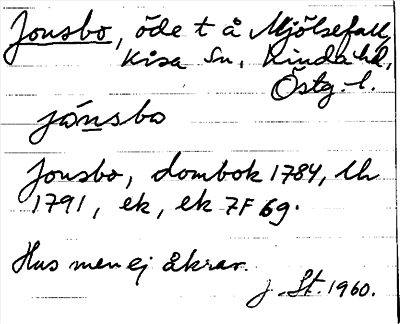 Jonsbo, öde t å Mjölsefall,
Kisa sn, Kinda hd,
Östg. l.
jónsbo
Jonsbo, dombok 1784, lh
1791, ek, ek 7F 69.
Hus men ej åkrar.
J. St. 1960.